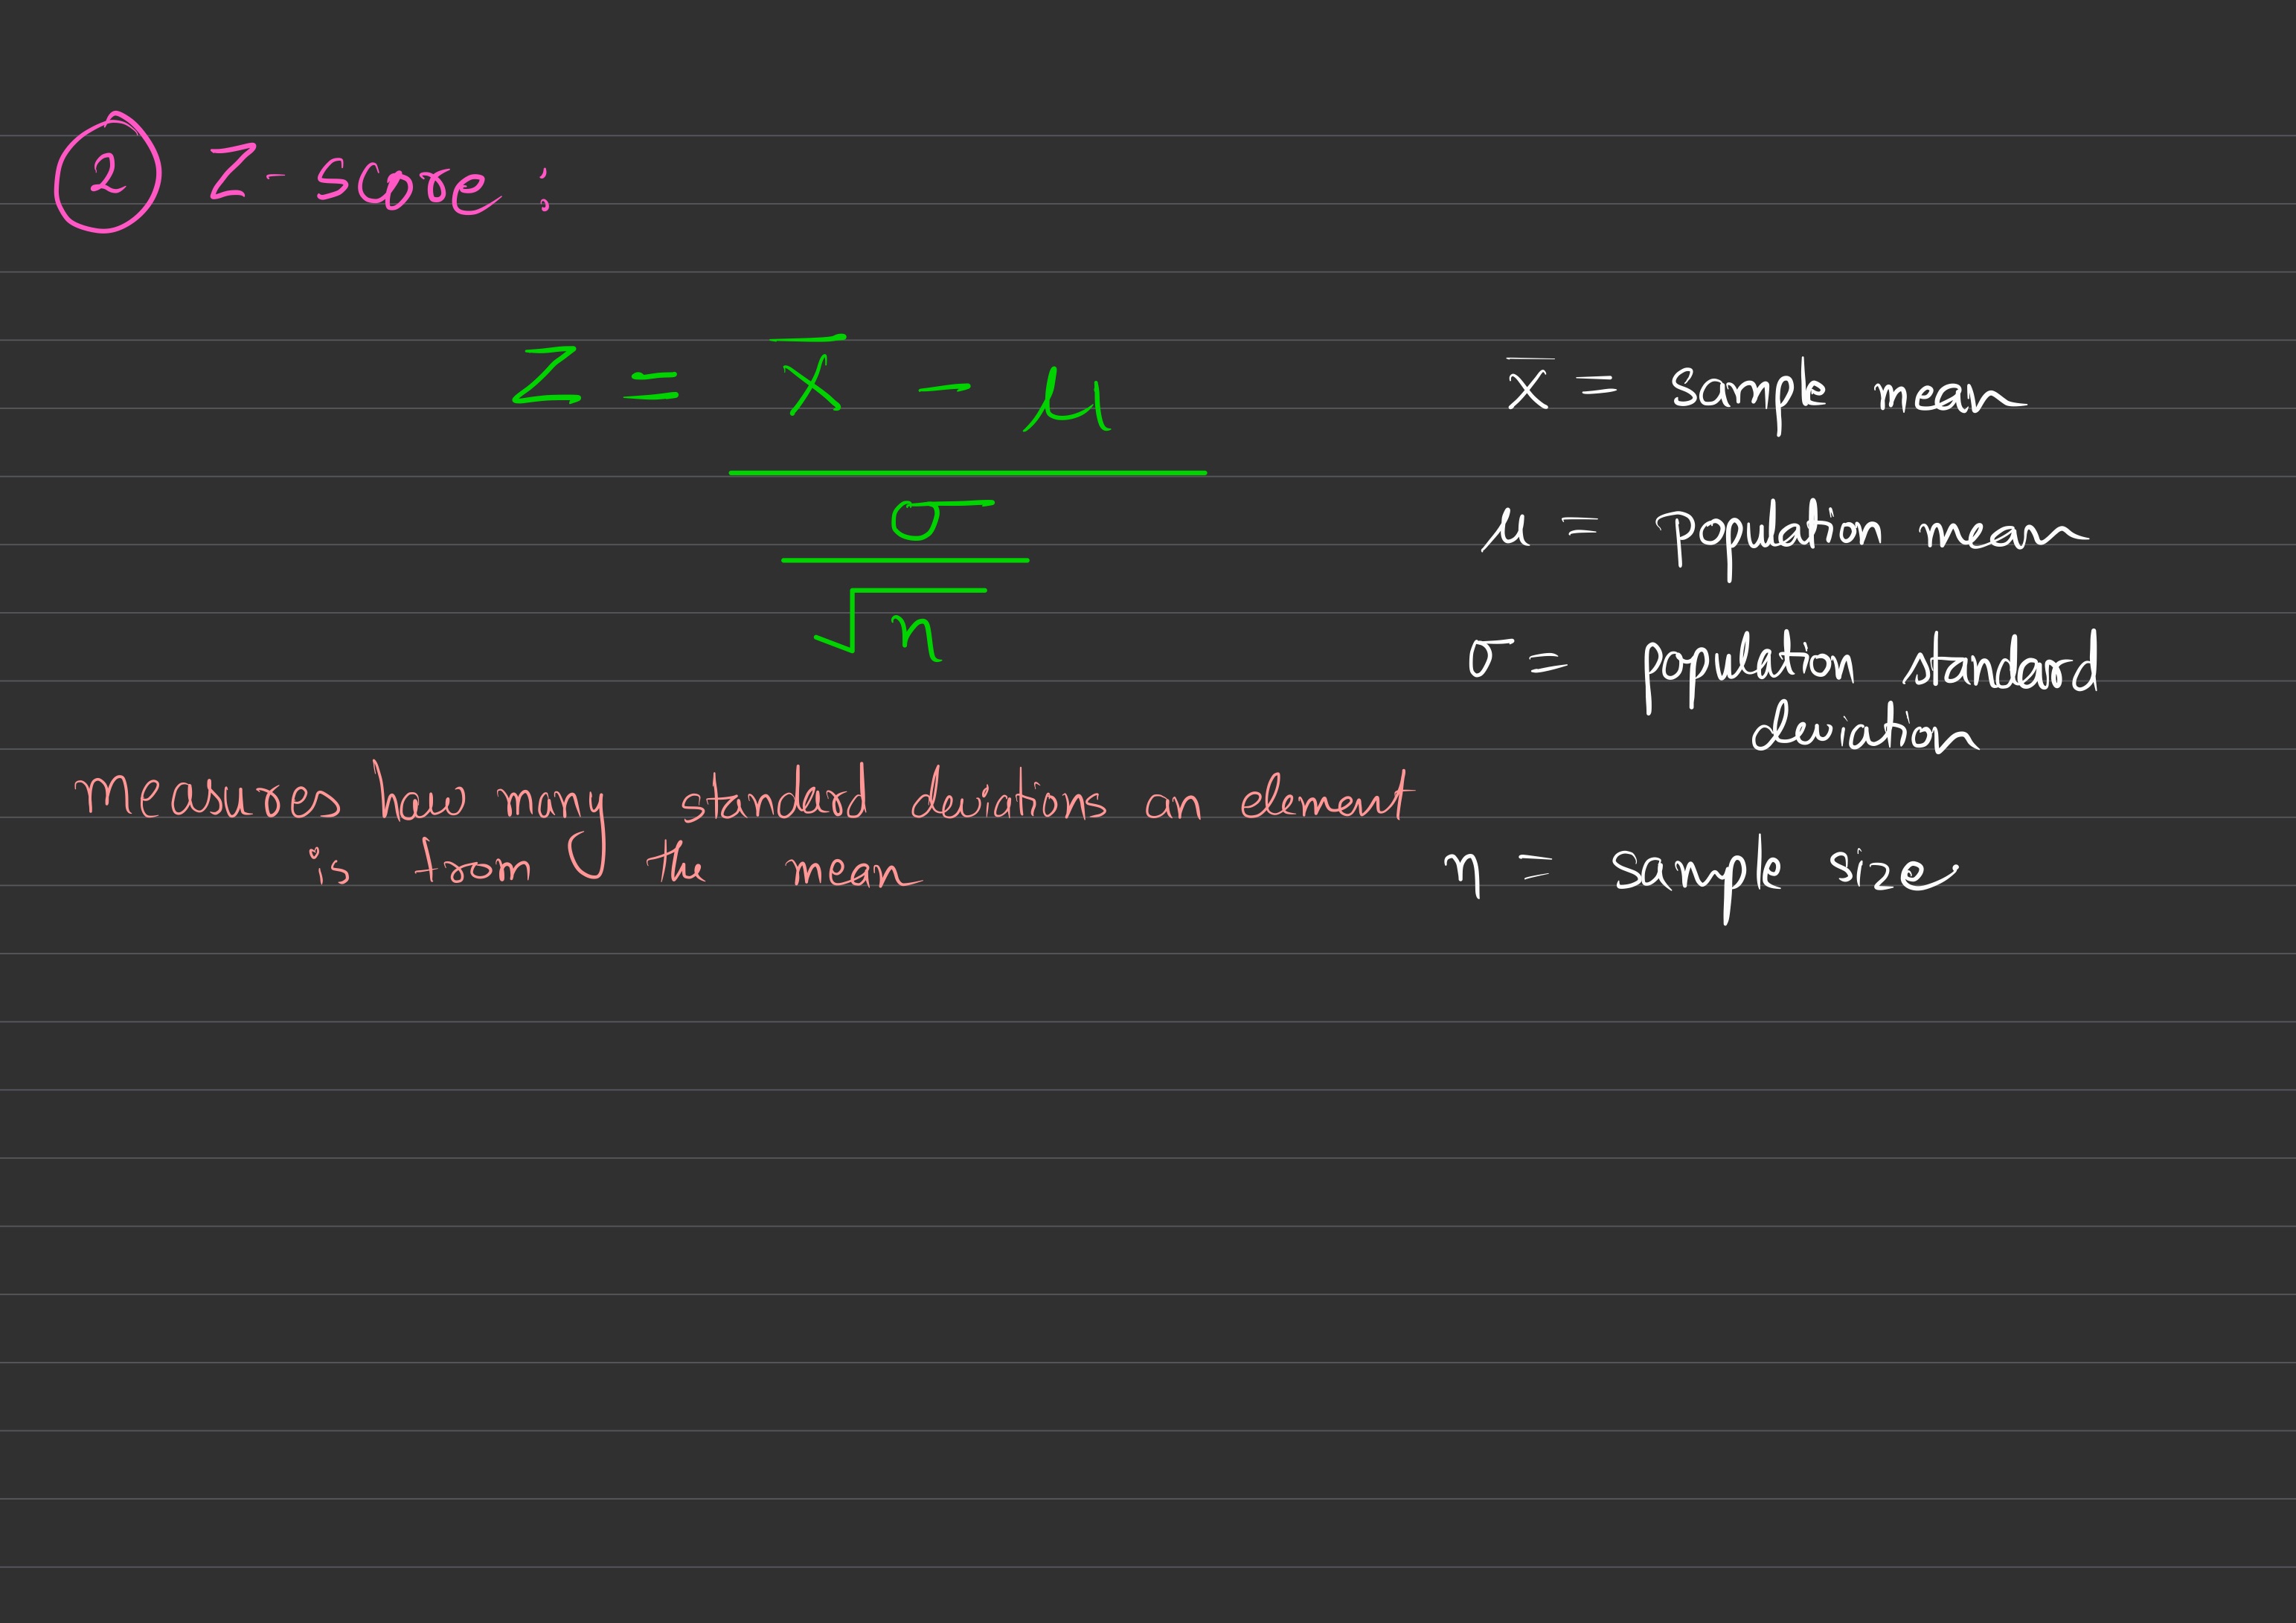 ② Z-score :
Z = x̄ - μ / σ / √n
x̄ = sample mean
μ = population mean
σ = population standard
deviation
measures how many standard deviations an element
is from the mean
n = sample size